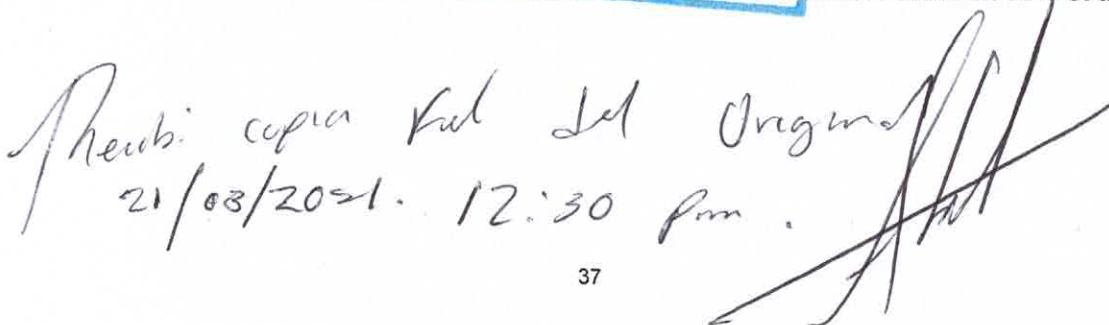 Recibi copia Fiel del Original
21/03/2021. 12:30 pm.
37